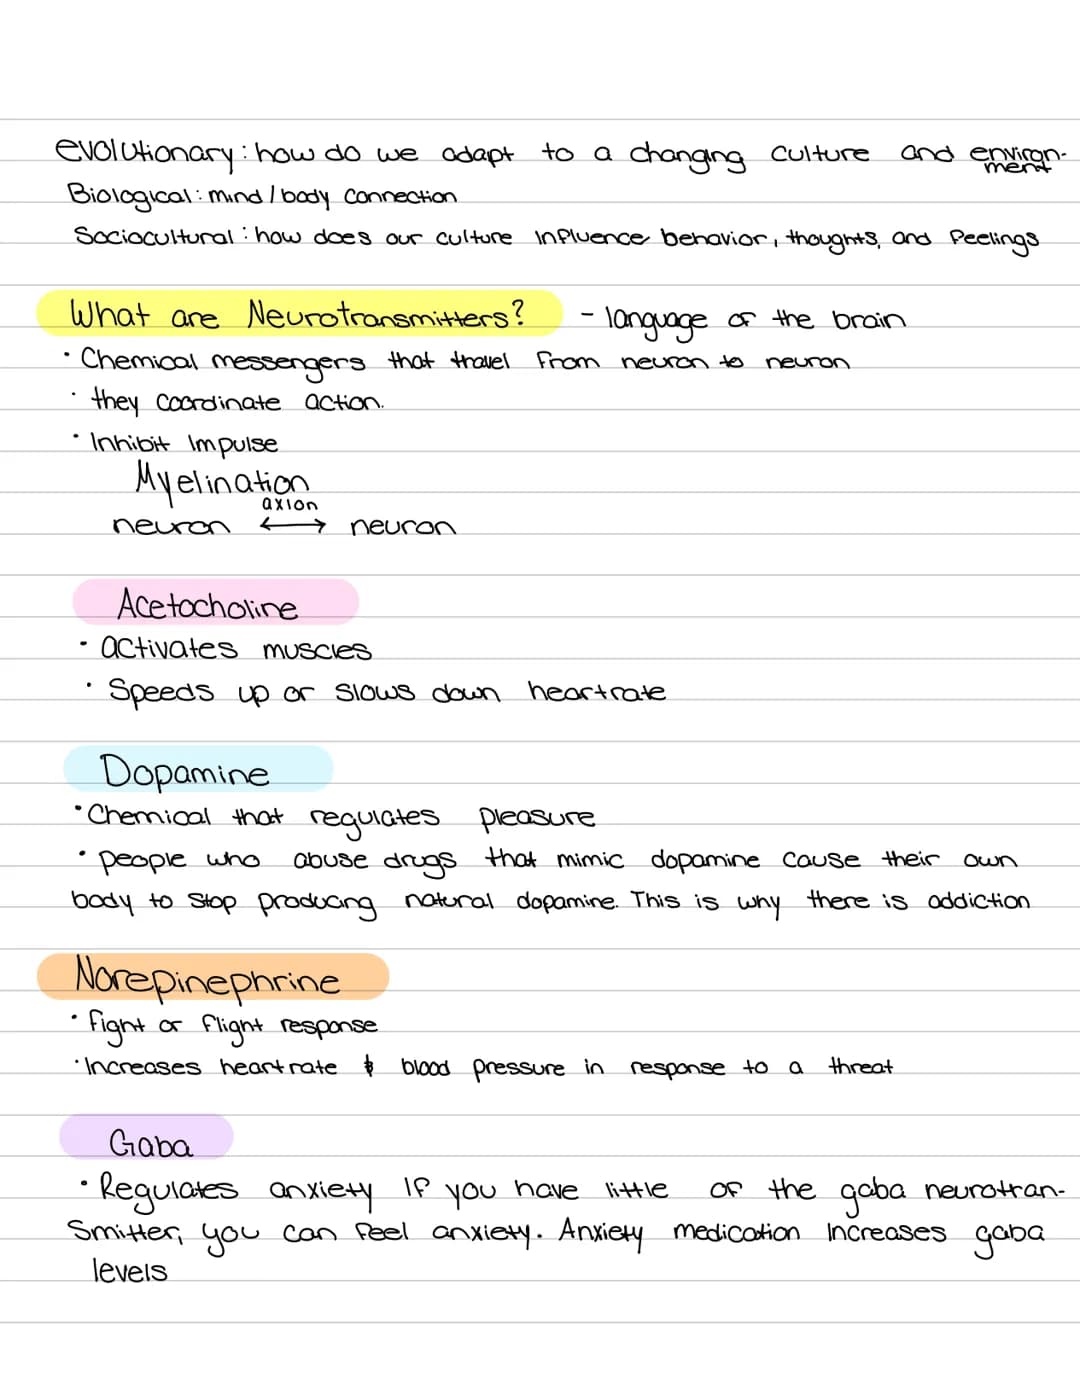 evolutionary: how do we adapt to a changing culture and environ-
ment
Biological: mind / body connection
Sociocultural: how does our culture influence behavior, thoughts, and feelings
What are Neurotransmitters? - language of the brain
• Chemical messengers that travel from neuron to neuron
• they coordinate action.
• Inhibit Impulse
Myelination
axion
neuron ⟷ neuron
Acetocholine
• activates muscles
• Speeds up or slows down heartrate
Dopamine
• Chemical that regulates pleasure
• people who abuse drugs that mimic dopamine cause their own
body to stop producing natural dopamine. This is why there is addiction
Norepinephrine
• fight or flight response
• Increases heartrate & blood pressure in response to a threat
Gaba
• Regulates anxiety If you have little of the gaba neurotran-
smitter, you can feel anxiety. Anxiety medication Increases gaba
levels